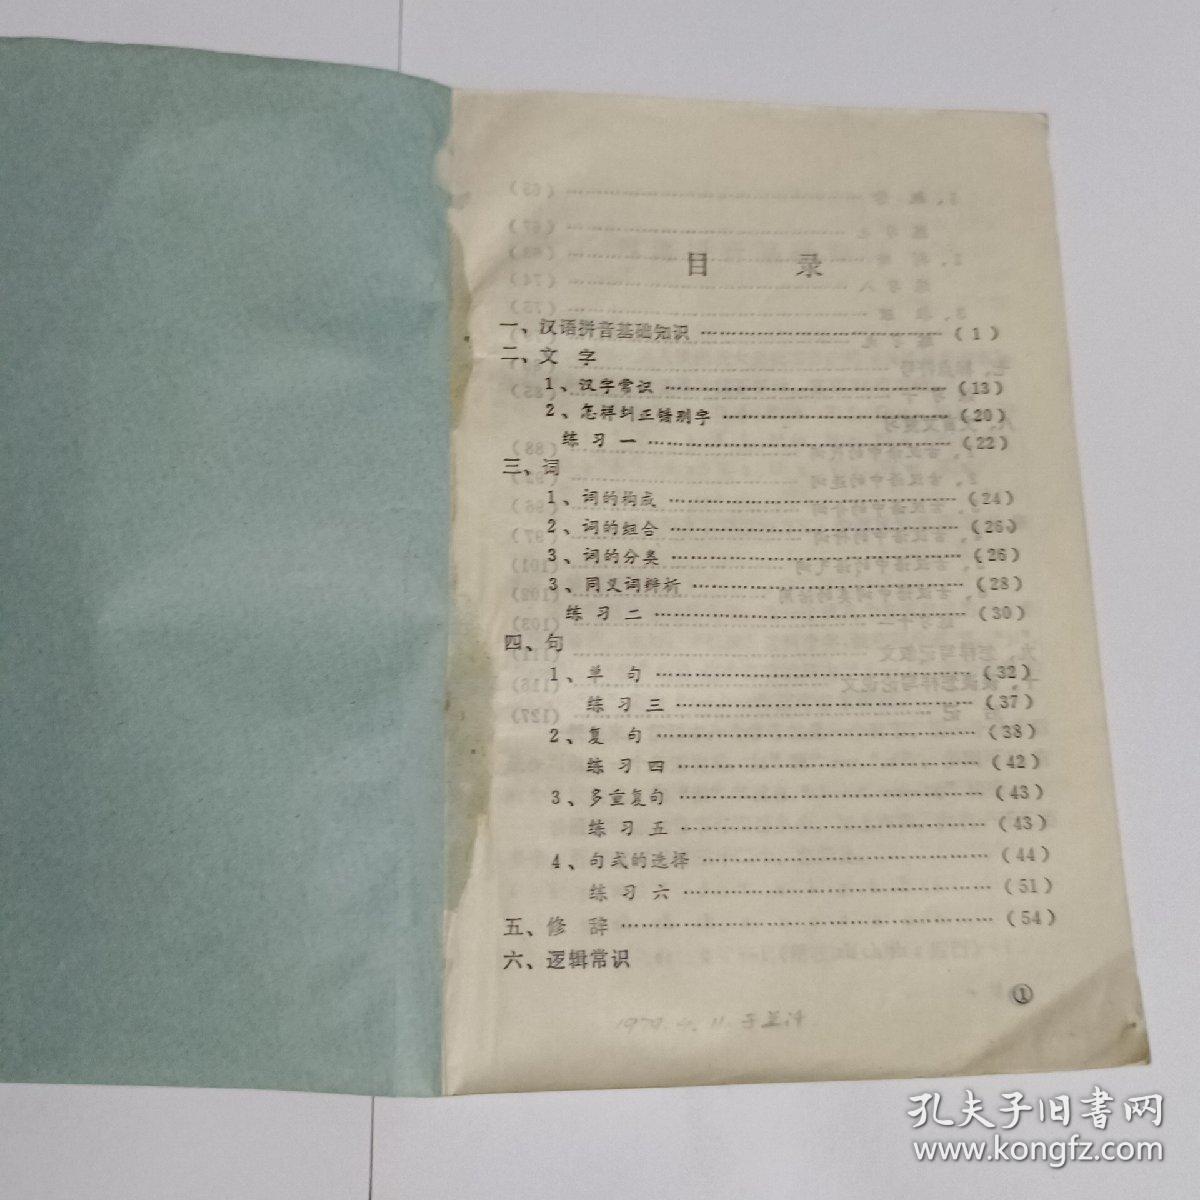 目 录
一、汉语拼音基础知识 ……………………… (1)
二、文 字
1、汉字常识 ……………………… (13)
2、怎样纠正错别字 ……………………… (20)
练 习 一 ……………………… (22)
三、词
1、词的构成 ……………………… (24)
2、词的组合 ……………………… (26)
3、词的分类 ……………………… (26)
3、同义词辨析 ……………………… (28)
练 习 二 ……………………… (30)
四、句
1、单 句 ……………………… (32)
练 习 三 ……………………… (37)
2、复 句 ……………………… (38)
练 习 四 ……………………… (42)
3、多重复句 ……………………… (43)
练 习 五 ……………………… (43)
4、句式的选择 ……………………… (44)
练 习 六 ……………………… (51)
五、修 辞 ……………………… (54)
六、逻辑常识
①
孔夫子旧书网
www.kongfz.com